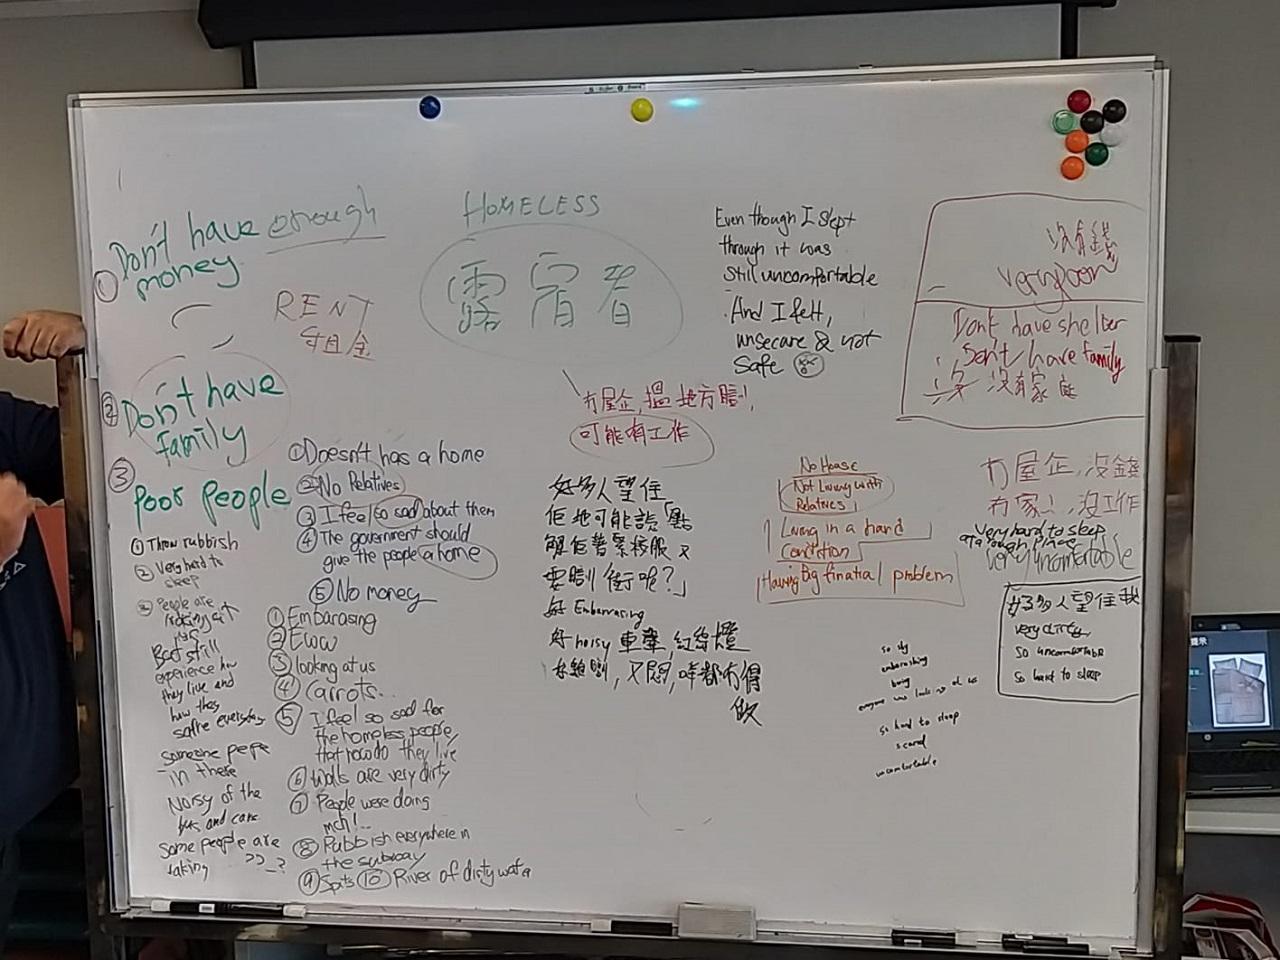 HOMELESS
露宿者
① Don't have enough
money
RENT
租金
② Don't have
family
③ Poor People
① Throw rubbish
② Very hard to
sleep
③ People are
looking at
us
But still
experience how
they live and
how they
everyday
someone
in there
Noisy of the
bus and cars
Some people are
① Doesn't has a home
② No Relatives
③ I feel so sad about them
④ The government should
give the people a home
⑤ No money
① Embarasing
② Eww
③ looking at us
④ Carrots...
⑤ I feel so sad for
the homeless people,
that how do they live
⑥ Walls are very dirty
⑦ People were doing
⑧ Rubbish everywhere in
the subway
⑨ Spits ⑩ River of dirty water
冇屋企,搵地方瞓,
可能有工作
好多人望住
佢地可能諗「點
解佢著緊校服又
要瞓街呢?」
好 Embarrasing
好 noisy 車聲,紅綠燈
好難瞓,又悶,咩都冇得
做
Even though I slept
through it was
still uncomfortable
And I felt,
unsecare & not
safe
No House
Not Living with
Relatives
Living in a hard
Condition
Having Big finatial problem
so
embarrasing
boring
everyone was looking at us
so hard to sleep
scared
uncomfortable
沒有錢
very poor
Dont have shelter
Don't have family
沒有家庭
冇屋企,沒錢
冇家人,沒工作
Very hard to sleep
very uncomfortable
好多人望住我
very dirty
so uncomfortable
so hard to sleep